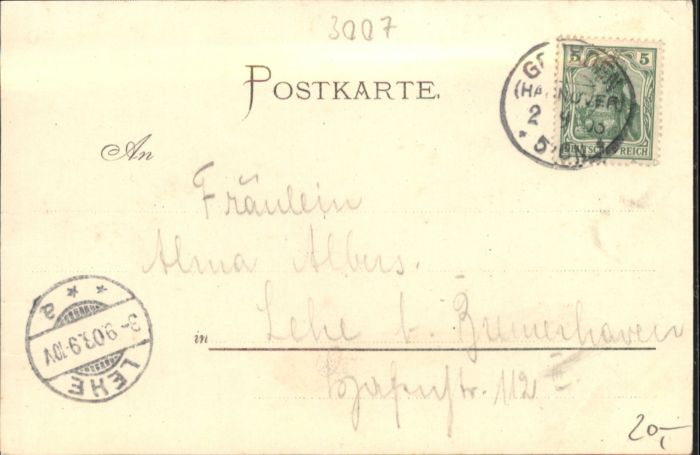 3007
POSTKARTE.
5 5
DEUTSCHES REICH
(HANNOVER)
2 9 03
An
Fräulein
Alma Albers.
in Lehe b. Bremerhaven
Hafenstr. 112 II
LEHE
3-9.03.9-10V
* * a
20,-